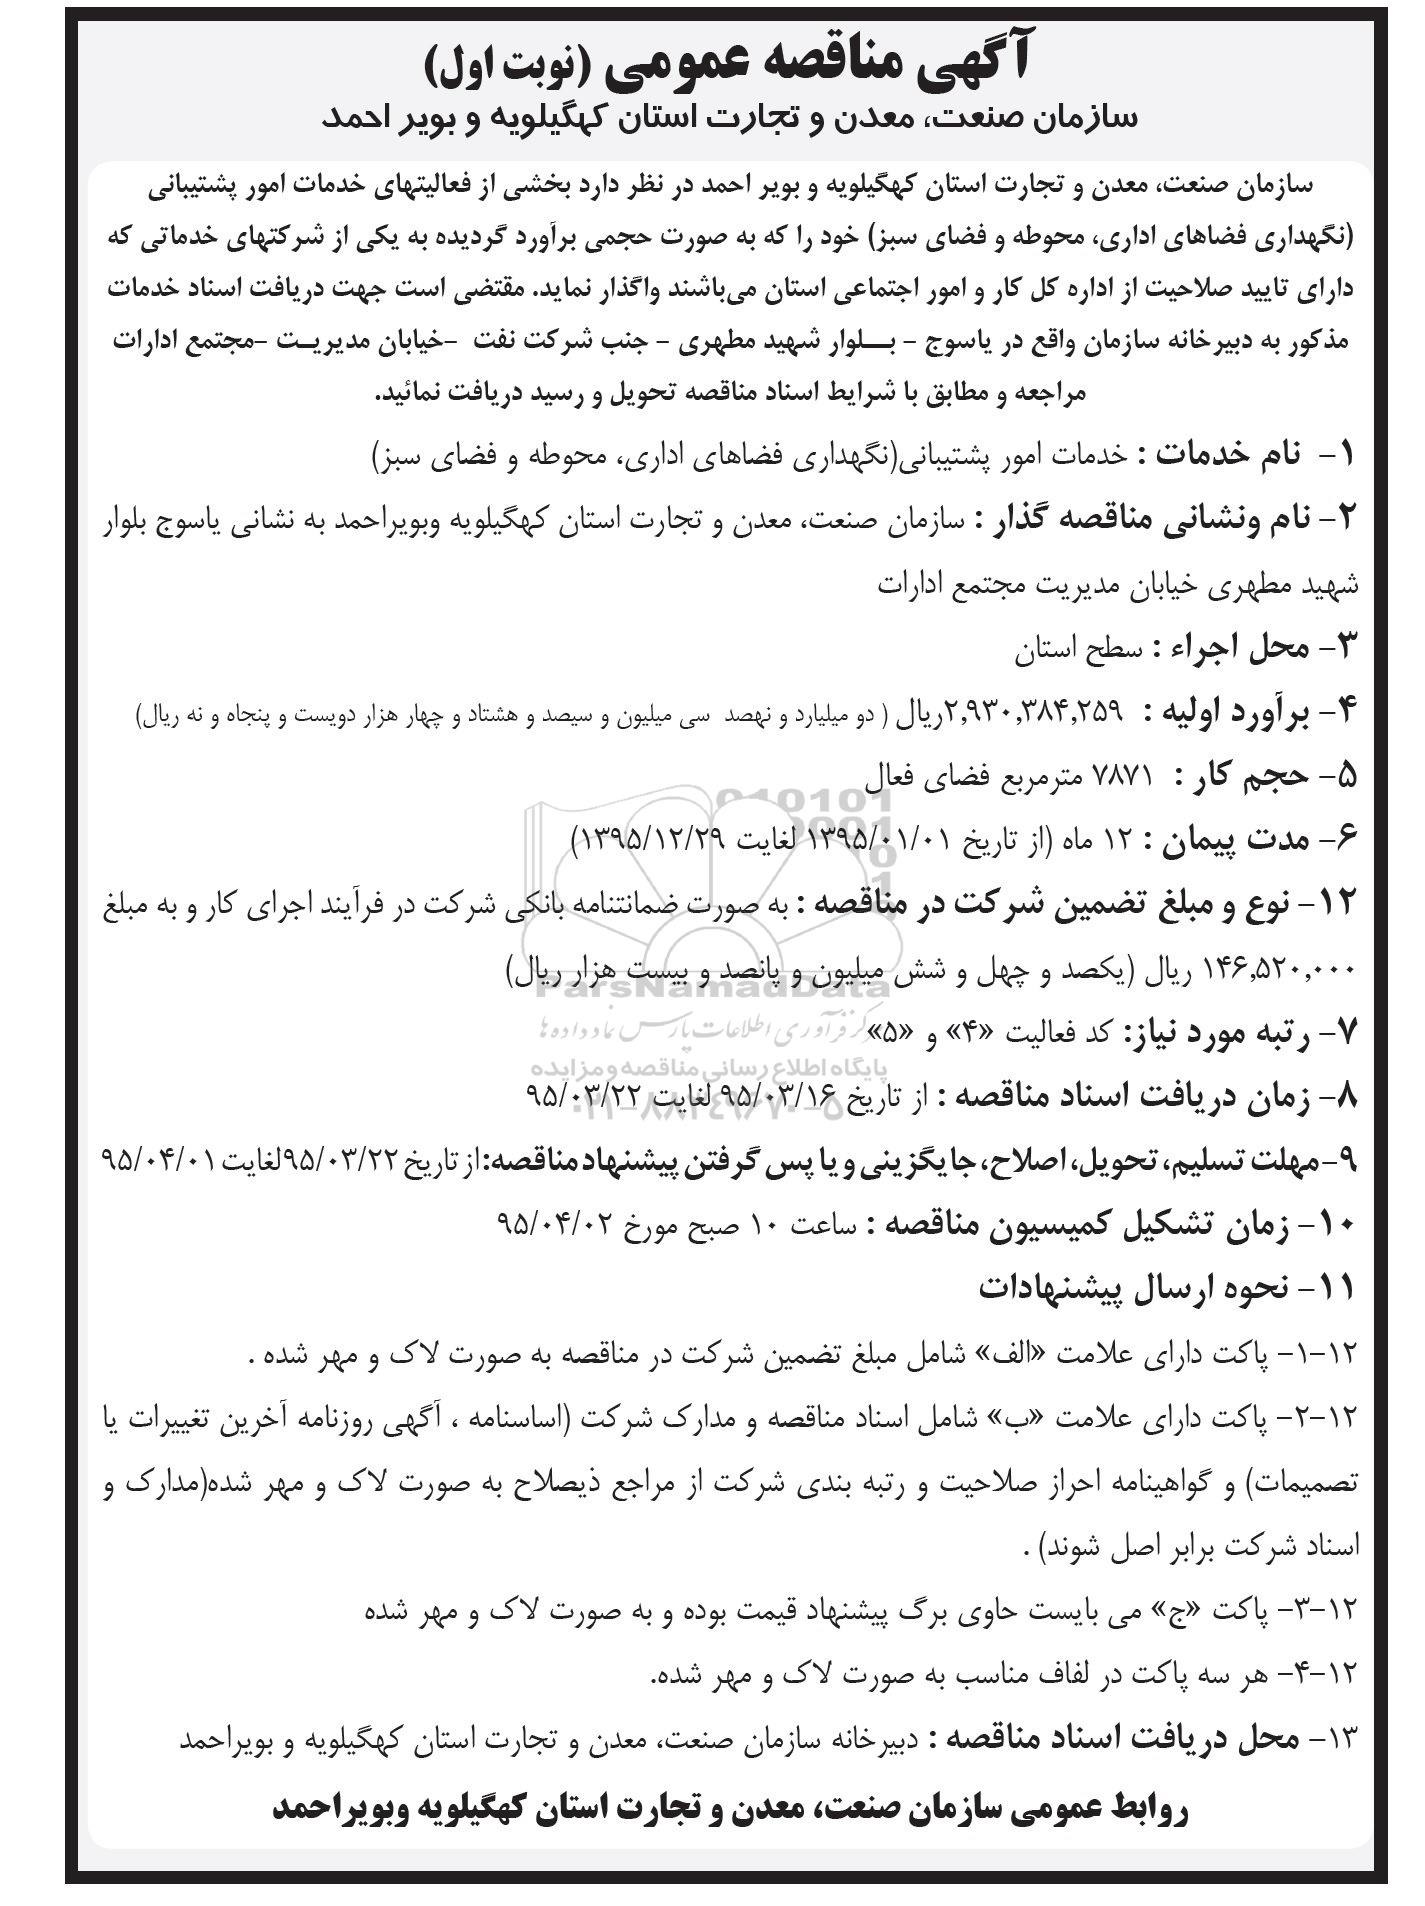 آگهی مناقصه عمومی (نوبت اول)
سازمان صنعت، معدن و تجارت استان کهگیلویه و بویر احمد
سازمان صنعت، معدن و تجارت استان کهگیلویه و بویر احمد در نظر دارد بخشی از فعالیتهای خدمات امور پشتیبانی
(نگهداری فضاهای اداری، محوطه و فضای سبز) خود را که به صورت حجمی برآورد گردیده به یکی از شرکتهای خدماتی که
دارای تایید صلاحیت از اداره کل کار و امور اجتماعی استان می‌باشند واگذار نماید. مقتضی است جهت دریافت اسناد خدمات
مذکور به دبیرخانه سازمان واقع در یاسوج - بـــلوار شهید مطهری - جنب شرکت نفت -خیابان مدیریـت -مجتمع ادارات
مراجعه و مطابق با شرایط اسناد مناقصه تحویل و رسید دریافت نمائید.
۱- نام خدمات : خدمات امور پشتیبانی(نگهداری فضاهای اداری، محوطه و فضای سبز)
۲- نام ونشانی مناقصه گذار : سازمان صنعت، معدن و تجارت استان کهگیلویه وبویراحمد به نشانی یاسوج بلوار
شهید مطهری خیابان مدیریت مجتمع ادارات
۳- محل اجراء : سطح استان
۴- برآورد اولیه : ۲,۹۳۰,۳۸۴,۲۵۹ریال ( دو میلیارد و نهصد سی میلیون و سیصد و هشتاد و چهار هزار دویست و پنجاه و نه ریال)
۵- حجم کار : ۷۸۷۱ مترمربع فضای فعال
۶- مدت پیمان : ۱۲ ماه (از تاریخ ۱۳۹۵/۰۱/۰۱ لغایت ۱۳۹۵/۱۲/۲۹)
۱۲- نوع و مبلغ تضمین شرکت در مناقصه : به صورت ضمانتنامه بانکی شرکت در فرآیند اجرای کار و به مبلغ
۱۴۶,۵۲۰,۰۰۰ ریال (یکصد و چهل و شش میلیون و پانصد و بیست هزار ریال)
ParsNamadData
۷- رتبه مورد نیاز: کد فعالیت «۴» و «۵»
پایگاه اطلاع رسانی مناقصه و مزایده
۸- زمان دریافت اسناد مناقصه : از تاریخ ۹۵/۰۳/۱۶ لغایت ۹۵/۰۳/۲۲
۰۲۱-۸۸۳۴۹۶۷۰-۵
۹-مهلت تسلیم، تحویل، اصلاح، جایگزینی و یا پس گرفتن پیشنهاد مناقصه: از تاریخ ۹۵/۰۳/۲۲لغایت ۹۵/۰۴/۰۱
۱۰- زمان تشکیل کمیسیون مناقصه : ساعت ۱۰ صبح مورخ ۹۵/۰۴/۰۲
۱۱- نحوه ارسال پیشنهادات
۱۲-۱- پاکت دارای علامت «الف» شامل مبلغ تضمین شرکت در مناقصه به صورت لاک و مهر شده .
۱۲-۲- پاکت دارای علامت «ب» شامل اسناد مناقصه و مدارک شرکت (اساسنامه ، آگهی روزنامه آخرین تغییرات یا
تصمیمات) و گواهینامه احراز صلاحیت و رتبه بندی شرکت از مراجع ذیصلاح به صورت لاک و مهر شده(مدارک و
اسناد شرکت برابر اصل شوند) .
۱۲-۳- پاکت «ج» می بایست حاوی برگ پیشنهاد قیمت بوده و به صورت لاک و مهر شده
۱۲-۴- هر سه پاکت در لفاف مناسب به صورت لاک و مهر شده.
۱۳- محل دریافت اسناد مناقصه : دبیرخانه سازمان صنعت، معدن و تجارت استان کهگیلویه و بویراحمد
روابط عمومی سازمان صنعت، معدن و تجارت استان کهگیلویه وبویراحمد